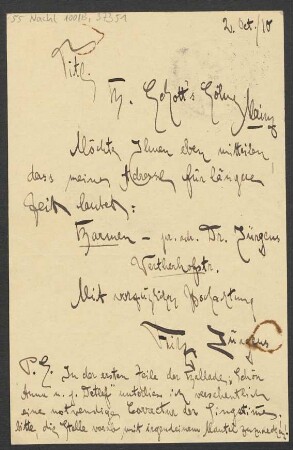 55 Nachl 100/B, 37351
2. Oct./10
Titl.
B. Schott's Söhne
Mainz
Möchte Ihnen eben mitteilen,
dass meine Adresse für längere
Zeit lautet:
Barmen – pr. adr. Dr. Jürgens
Wertherhofstr.
Mit vorzüglicher Hochachtung
Fritz Jürgens
P. S. In der ersten Zeile der Ballade „Schön
Anna u. j. Detlef" unterblieb ich versehentlich
eine notwendige Correctur der Singstimme.
bitte, die Stelle vorher mit irgendeinem